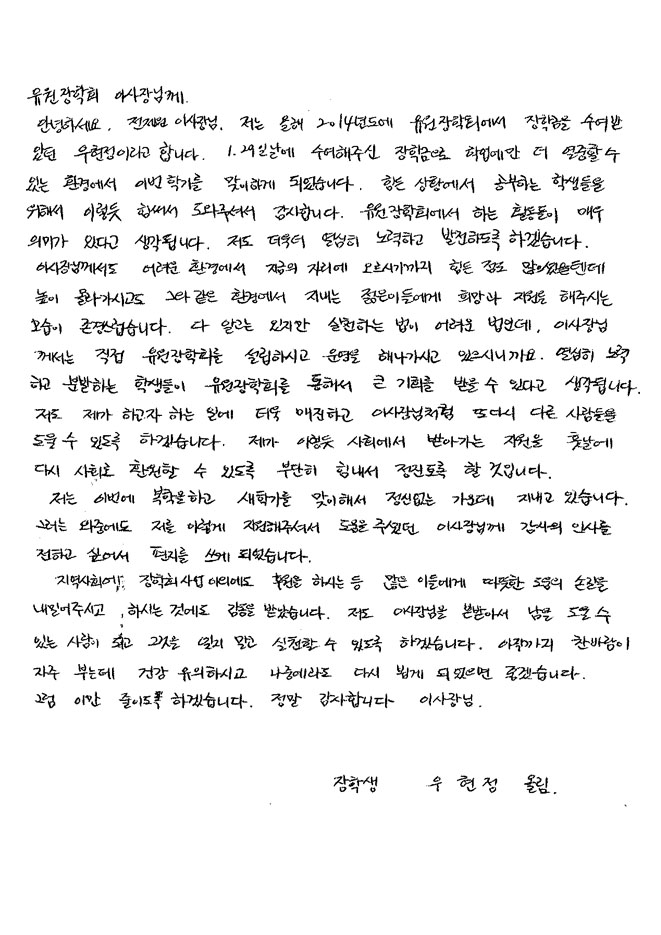 유원장학회 이사장님께.
안녕하세요. 전제원 이사장님. 저는 올해 2014년도에 유원장학회에서 장학금을 수여받
았던 우현정이라고 합니다. 1.29일날에 수여해주신 장학금으로 학업에만 더 열중할 수
있는 환경에서 이번 학기를 맞이하게 되었습니다. 힘든 상황에서 공부하는 학생들을
위해서 이렇듯 힘써서 도와주셔서 감사합니다. 유원장학회에서 하는 활동들이 매우
의미가 있다고 생각됩니다. 저도 더욱더 열심히 노력하고 발전하도록 하겠습니다.
이사장님께서도 어려운 환경에서 지금의 자리에 오르시기까지 힘든 점도 많으셨을텐데
높이 올라가시고도 그와 같은 환경에서 지내는 젊은이들에게 희망과 지원을 해주시는
모습이 존경스럽습니다. 다 알고는 있지만 실천하는 법이 어려운 법인데, 이사장님
께서는 직접 유원장학회를 설립하시고 운영을 해나가시고 있으시니까요. 열심히 노력
하고 분발하는 학생들이 유원장학회를 통해서 큰 기회를 받을 수 있다고 생각됩니다.
저도 제가 하고자 하는 일에 더욱 매진하고 이사장님처럼 또다시 다른 사람들을
도울 수 있도록 하겠습니다. 제가 이렇듯 사회에서 받아가는 지원을 훗날에
다시 사회로 환원할 수 있도록 부단히 힘내서 정진토록 할 것입니다.
저는 이번에 복학을하고 새학기를 맞이해서 정신없는 가운데 지내고 있습니다.
그러는 와중에도 저를 이렇게 지원해주셔서 도움을 주셨던 이사장님께 감사의 인사를
전하고 싶어서 편지를 쓰게 되었습니다.
지역사회에, 장학회사업 이외에도 후원을 하시는 등 많은 이들에게 따뜻한 도움의 손길을
내밀어주시고, 하시는 것에도 감동을 받았습니다. 저도 이사장님을 본받아서 남을 도울 수
있는 사람이 되고 그것을 잊지 말고 실천할 수 있도록 하겠습니다. 아직까지 찬바람이
자주 부는데 건강 유의하시고 나중에라도 다시 뵙게 되었으면 좋겠습니다.
그럼 이만 줄이도록 하겠습니다. 정말 감사합니다 이사장님.
장학생 우현정 올림.